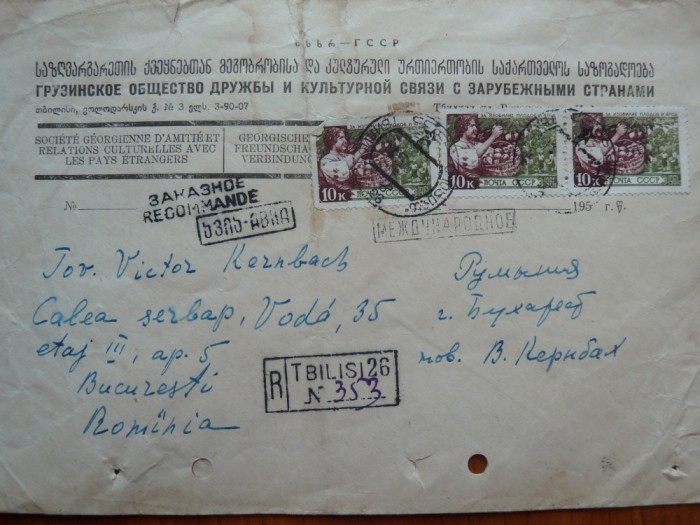 სსსრ — ГССР
საზღვარგარეთის ქვეყნებთან მეგობრობისა და კულტურული ურთიერთობის საქართველოს საზოგადოება
ГРУЗИНСКОЕ ОБЩЕСТВО ДРУЖБЫ И КУЛЬТУРНОЙ СВЯЗИ С ЗАРУБЕЖНЫМИ СТРАНАМИ
თბილისი, ვოლოდარსკის ქ. № 3 ელს. 3-90-07
SOCIÉTÉ GÉORGIENNE D'AMITIÉ ET
RELATIONS CULTURELLES AVEC
LES PAYS ÉTRANGERS
GEORGISCHE
FREUNDSCHA
VERBINDUN
10К ПОЧТА СССР
10К ПОЧТА СССР
10К ПОЧТА СССР
ЗАКАЗНОЕ
RECOMMANDE
№
ავია-АВИА
МЕЖДУНАРОДНОЕ
195 г.წ.
Tov. Victor Kernbach
Calea serbap, Vodá, 35
etaj III, ap. 5
București
România
Румыния
г. Бухарест
тов. В. Кернбах
R TBILISI 26
N 353